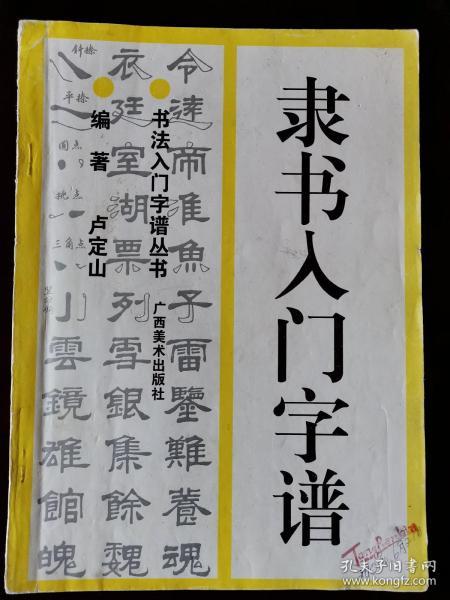 隶书入门字谱
书法入门字谱丛书
广西美术出版社
编著 卢定山
令
帝
淮
魚
子
雷
鑒
難
養
魂
衣
廷
室
湖
票
列
雪
銀
集
餘
魏
斜捺
平捺
圆点
挑点
三角点
八
小
雲
鏡
雄
館
魄
孔夫子旧书网